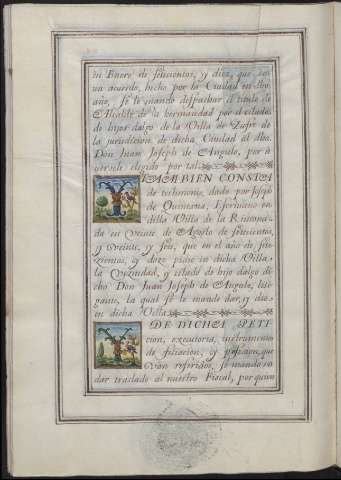 en Enero de setecientos, y diez, que con
un acuerdo, hecho por la Ciudad en dho
año, se le mando despachar el titulo de
Alcalde de la hermandad por el estado
de hijos dalgo de la Villa de Zufre de
la jurisdicion de dicha Ciudad al dho
Don Juan Joseph de Angulo, por a
verle elegido por tal
TAMBIEN CONSTA
de testimonio, dado por Joseph
de Quintana, Escrivano en
dilla Villa de la Rinconada
da en Veinte de Agosto de setecientos,
y Veinte, y seis, que en el año de sete
zientos, y doze pidio en dicha Villa
la Vezindad, y estado de hijo dalgo di
cho Don Juan Joseph de Angulo, liti
gante, la qual se le mando dar, y dio
en dicha Villa
DE DICHA PETI
cion, executoria, instrumentos
de filiacion, y posesion, que
Van referidos, se mando en
dar traslado al nuestro Fiscal, por quien